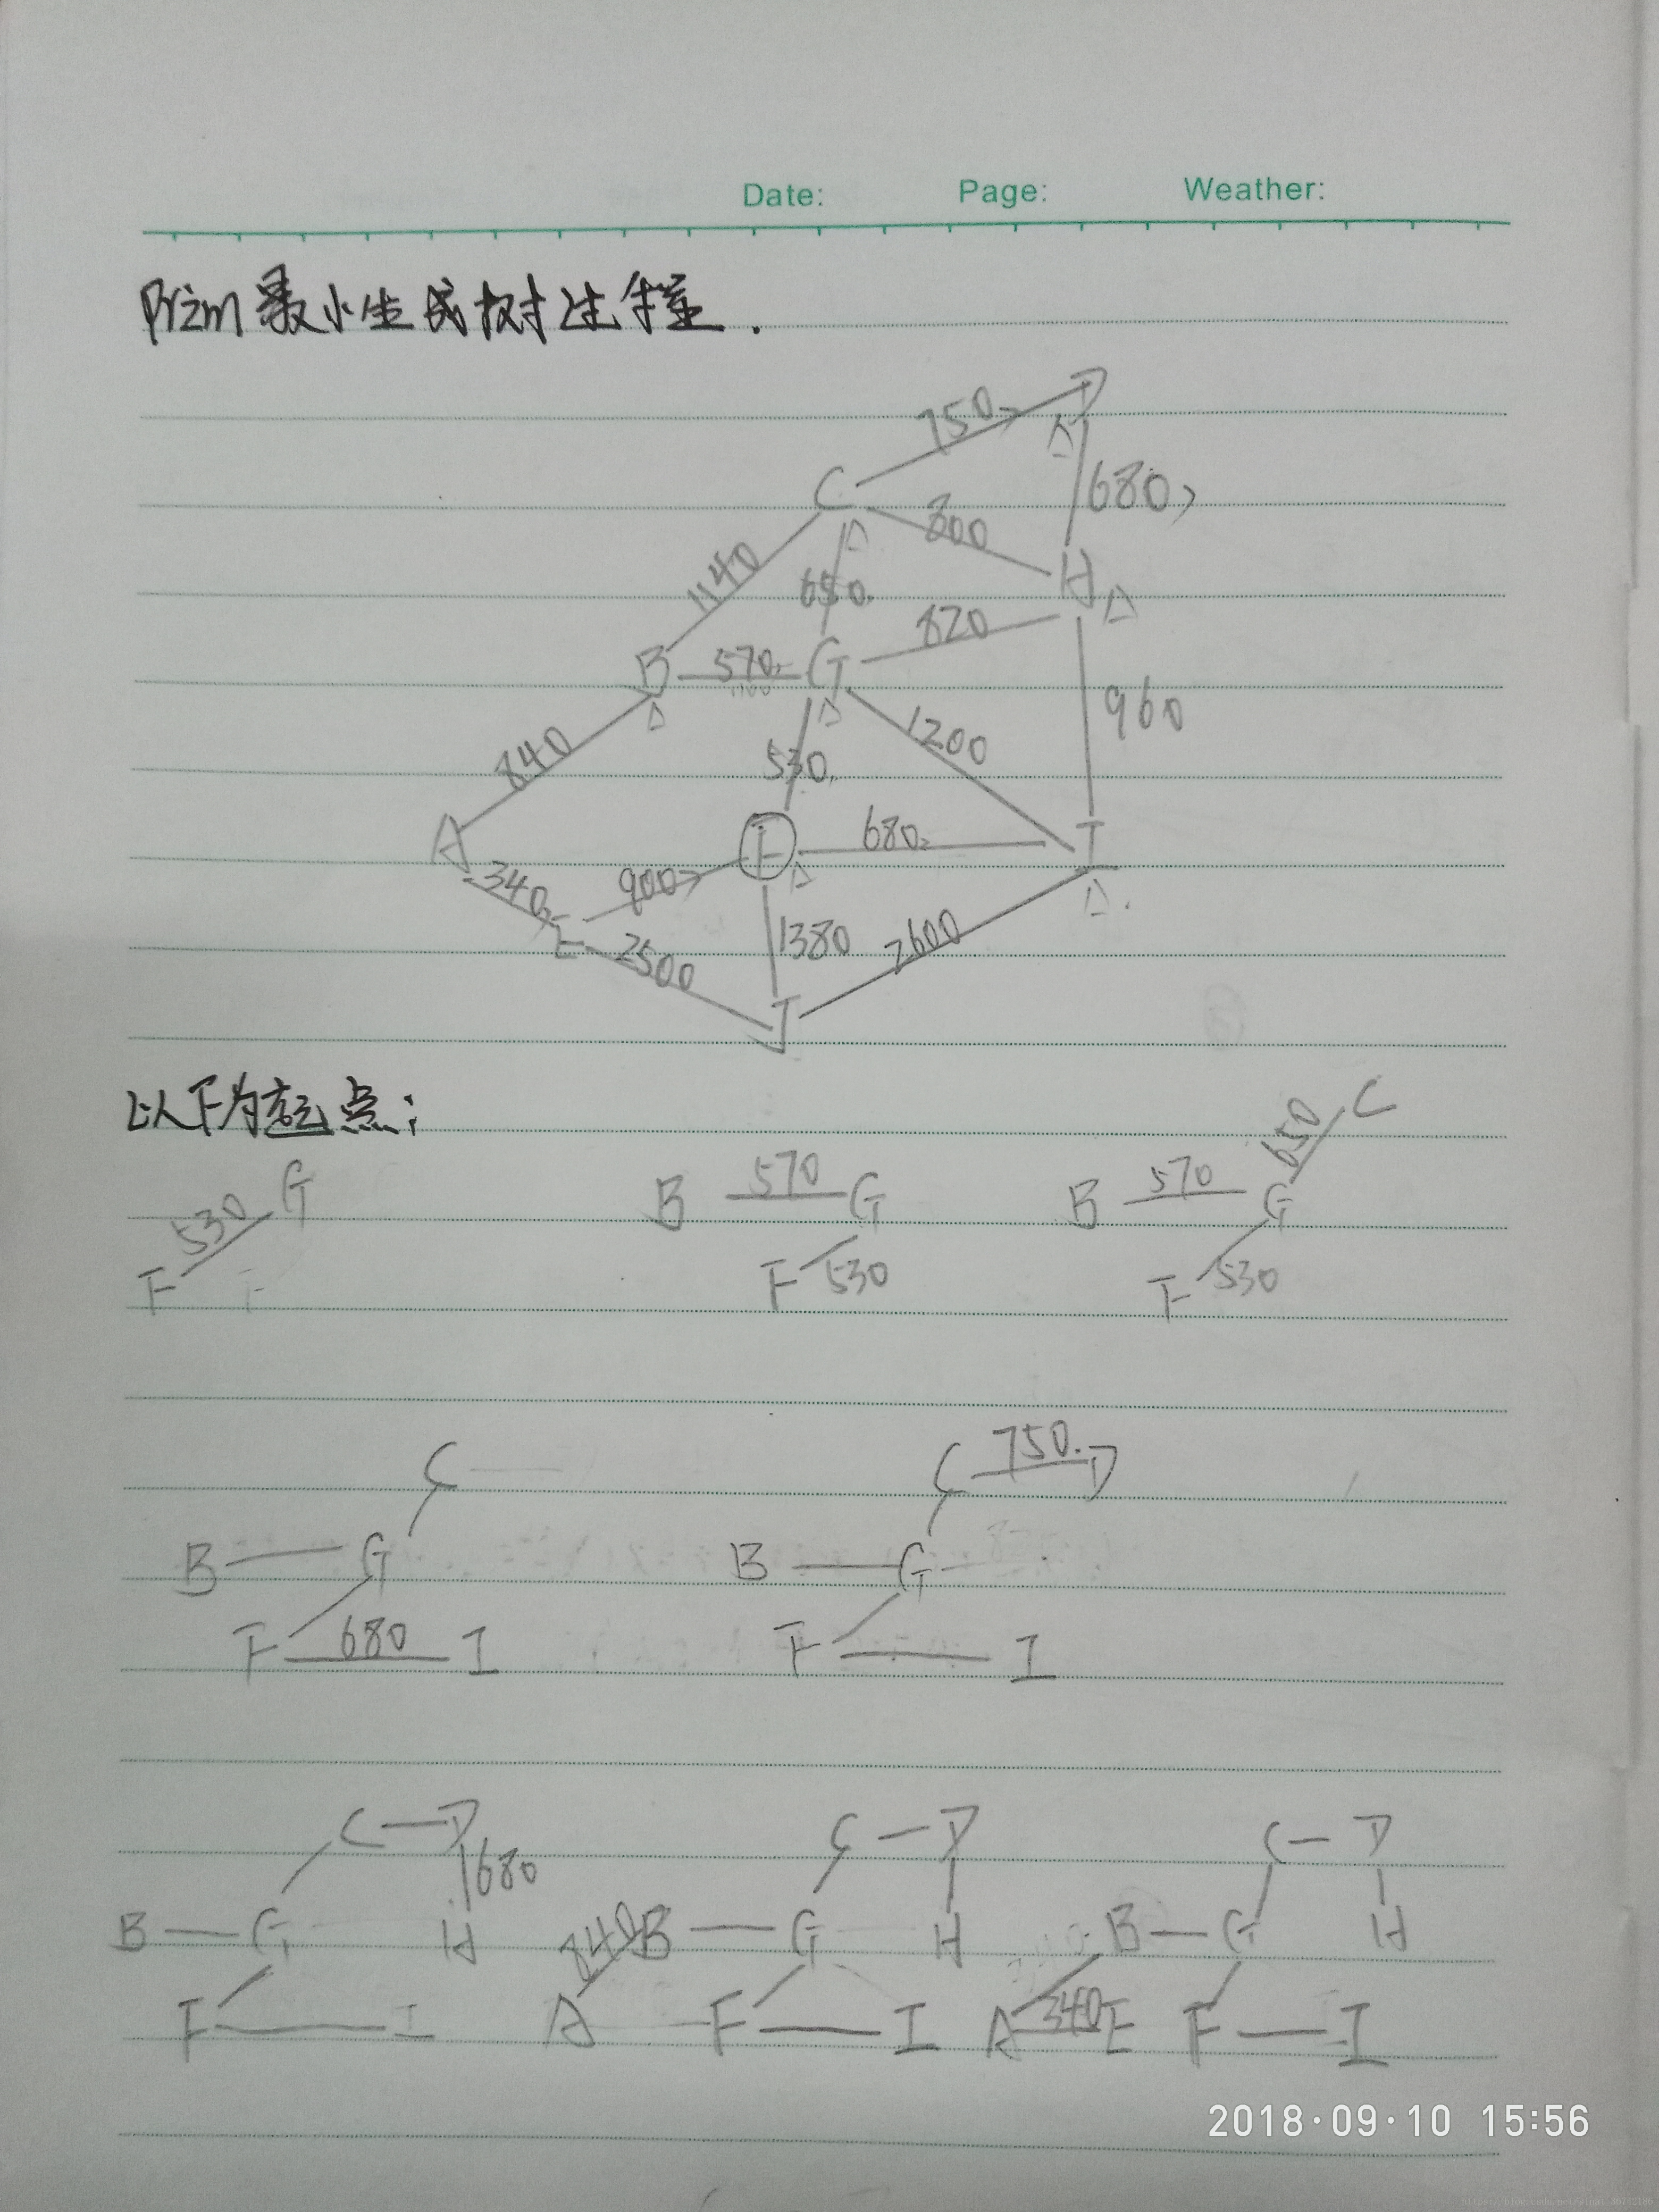 Date: Page: Weather:
Prim最小生成树过程.
D
750
C
680
800
1140
650
H
820
B 570 G
960
1200
840
530
A
F 680 I
340
900
E
1380
2600
2500
J
以F为起点:
C
650
G
570
570
530
B G
B G
F
F 530
F 530
C
C 750 D
B G
B G
F 680 I
F I
C D
C D
C D
680
B G H
840
B G H
B G H
F I
A F I
A 340 E F I
2018·09·10 15:56